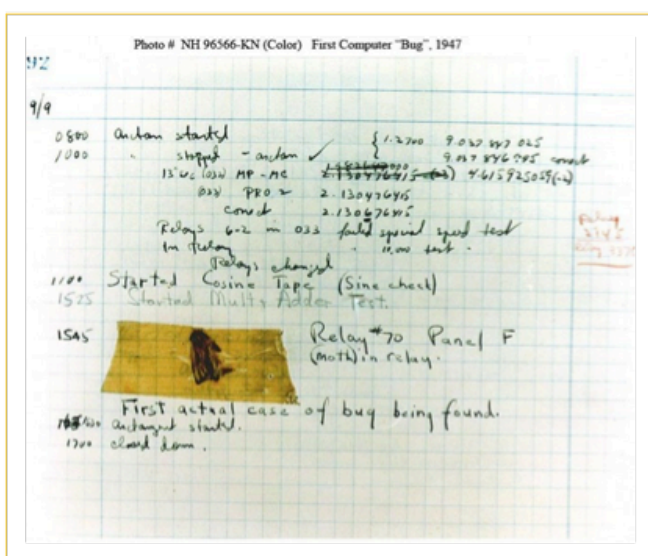 Photo # NH 96566-KN (Color) First Computer "Bug", 1947
92
9/9
0800 antan started
1000 " stopped - antan ✓ { 1.2700 9.037 847 025
9.037 846 795 conect
13"uc (032) MP - MC 2.130476415 (-3) 4.615925059(-2)
(033) PRO 2 2.130476415
conect 2.130676415
Relays 6-2 in 033 failed special speed test
In Relay " 10,000 test.
Relays changed
1100 Started Cosine Tape (Sine check)
1525 Started Mult + Adder Test.
1545 Relay #70 Panel F
(moth) in relay.
First actual case of bug being found.
antangent started.
1700 closed down.